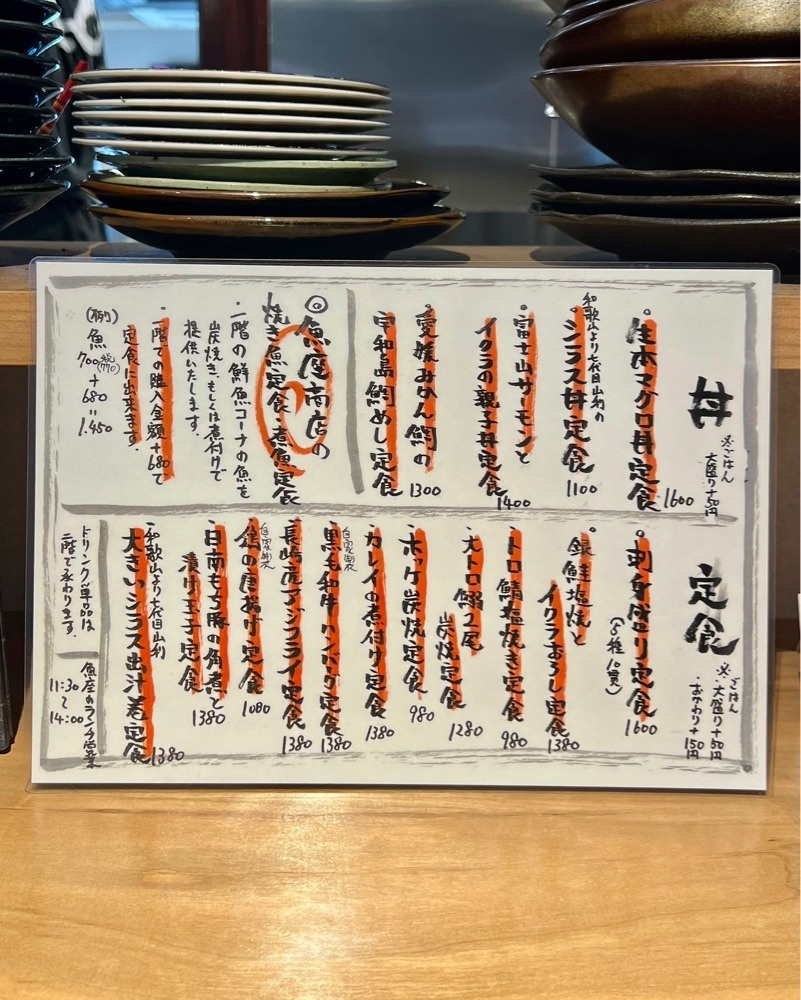 丼
※ごはん
大盛り+50円
生本マグロ丼定食
1600
和歌山より七代目山利の
シラス丼定食
1100
富士山サーモンと
イクラの親子丼定食
1400
愛媛みかん鯛の
宇和島鯛めし定食
1300
◎魚座商店の
焼き魚定食 煮魚定食
・一階の鮮魚コーナの魚を
炭焼き、もしくは煮付けで
提供いたします。
・一階での購入金額+680で
定食に出来ます。
(例)
魚
700(税770)
+
680
=
1.450
定食
※ごはん
・大盛り+50円
・おかわり+150円
刺身盛り定食
(5種10貫)
1600
銀鮭塩焼と
イクラおろし定食
1380
トロ鯖塩焼き定食
980
大トロ鰯2尾
炭焼定食
1280
ホッケ炭焼定食
980
カレイの煮付け定食
1380
自家製
黒毛和牛ハンバーグ定食
1380
長崎産アジフライ定食
1380
自家製
鶏の唐揚げ定食
1080
日南もち豚の角煮と
漬け玉子定食
1380
和歌山より七代目山利
大きいシラス出汁巻定食
1380
ドリンク単品は
二階で承わります。
魚座のランチ営業
11:30
~
14:00